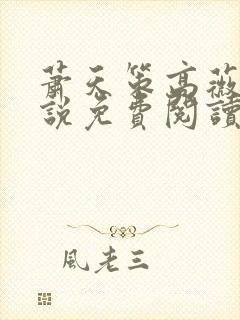 蕭天策高薇
說免費閱讀
風老三